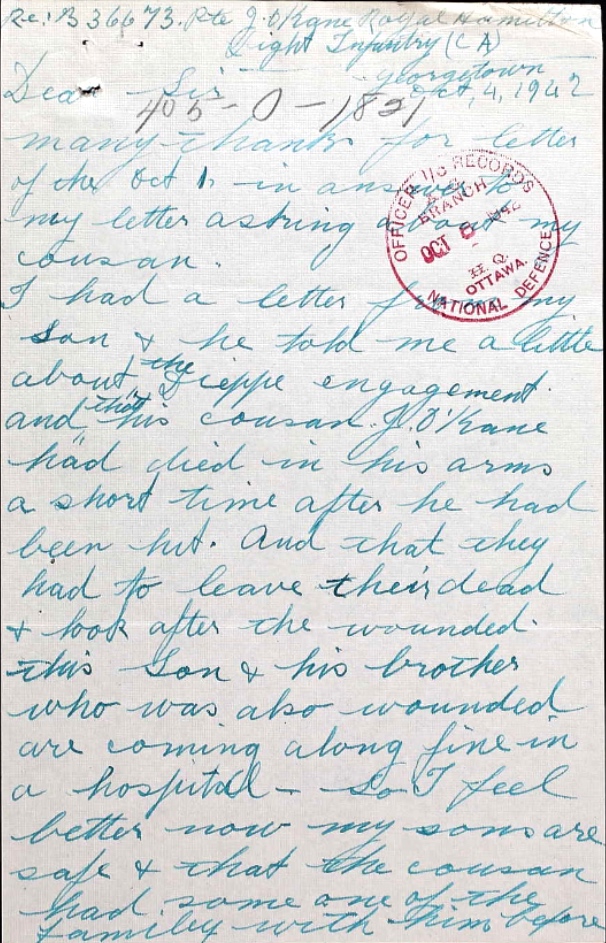 Re: B 36673. Pte J. O'Kane Royal Hamilton
Light Infantry (C A)
Georgetown
Oct, 4, 1942
Dear Sir
405-O-1821
many thanks for letter
of the Oct 1, in answer to
my letter asking about my
cousan.
OFFICER I/C RECORDS
BRANCH
OCT 6 1942
H.Q.
OTTAWA.
NATIONAL DEFENCE
I had a letter from my
son & he told me a little
about the Dieppe engagement.
and that his cousan J. O'Kane
had died in his arms
a short time after he had
been hit. And that they
had to leave their dead
& look after the wounded.
this Son & his brother
who was also wounded
are coming along fine in
a hospital - so I feel
better now my sons are
safe & that the cousan
had some one of the
familey with him before